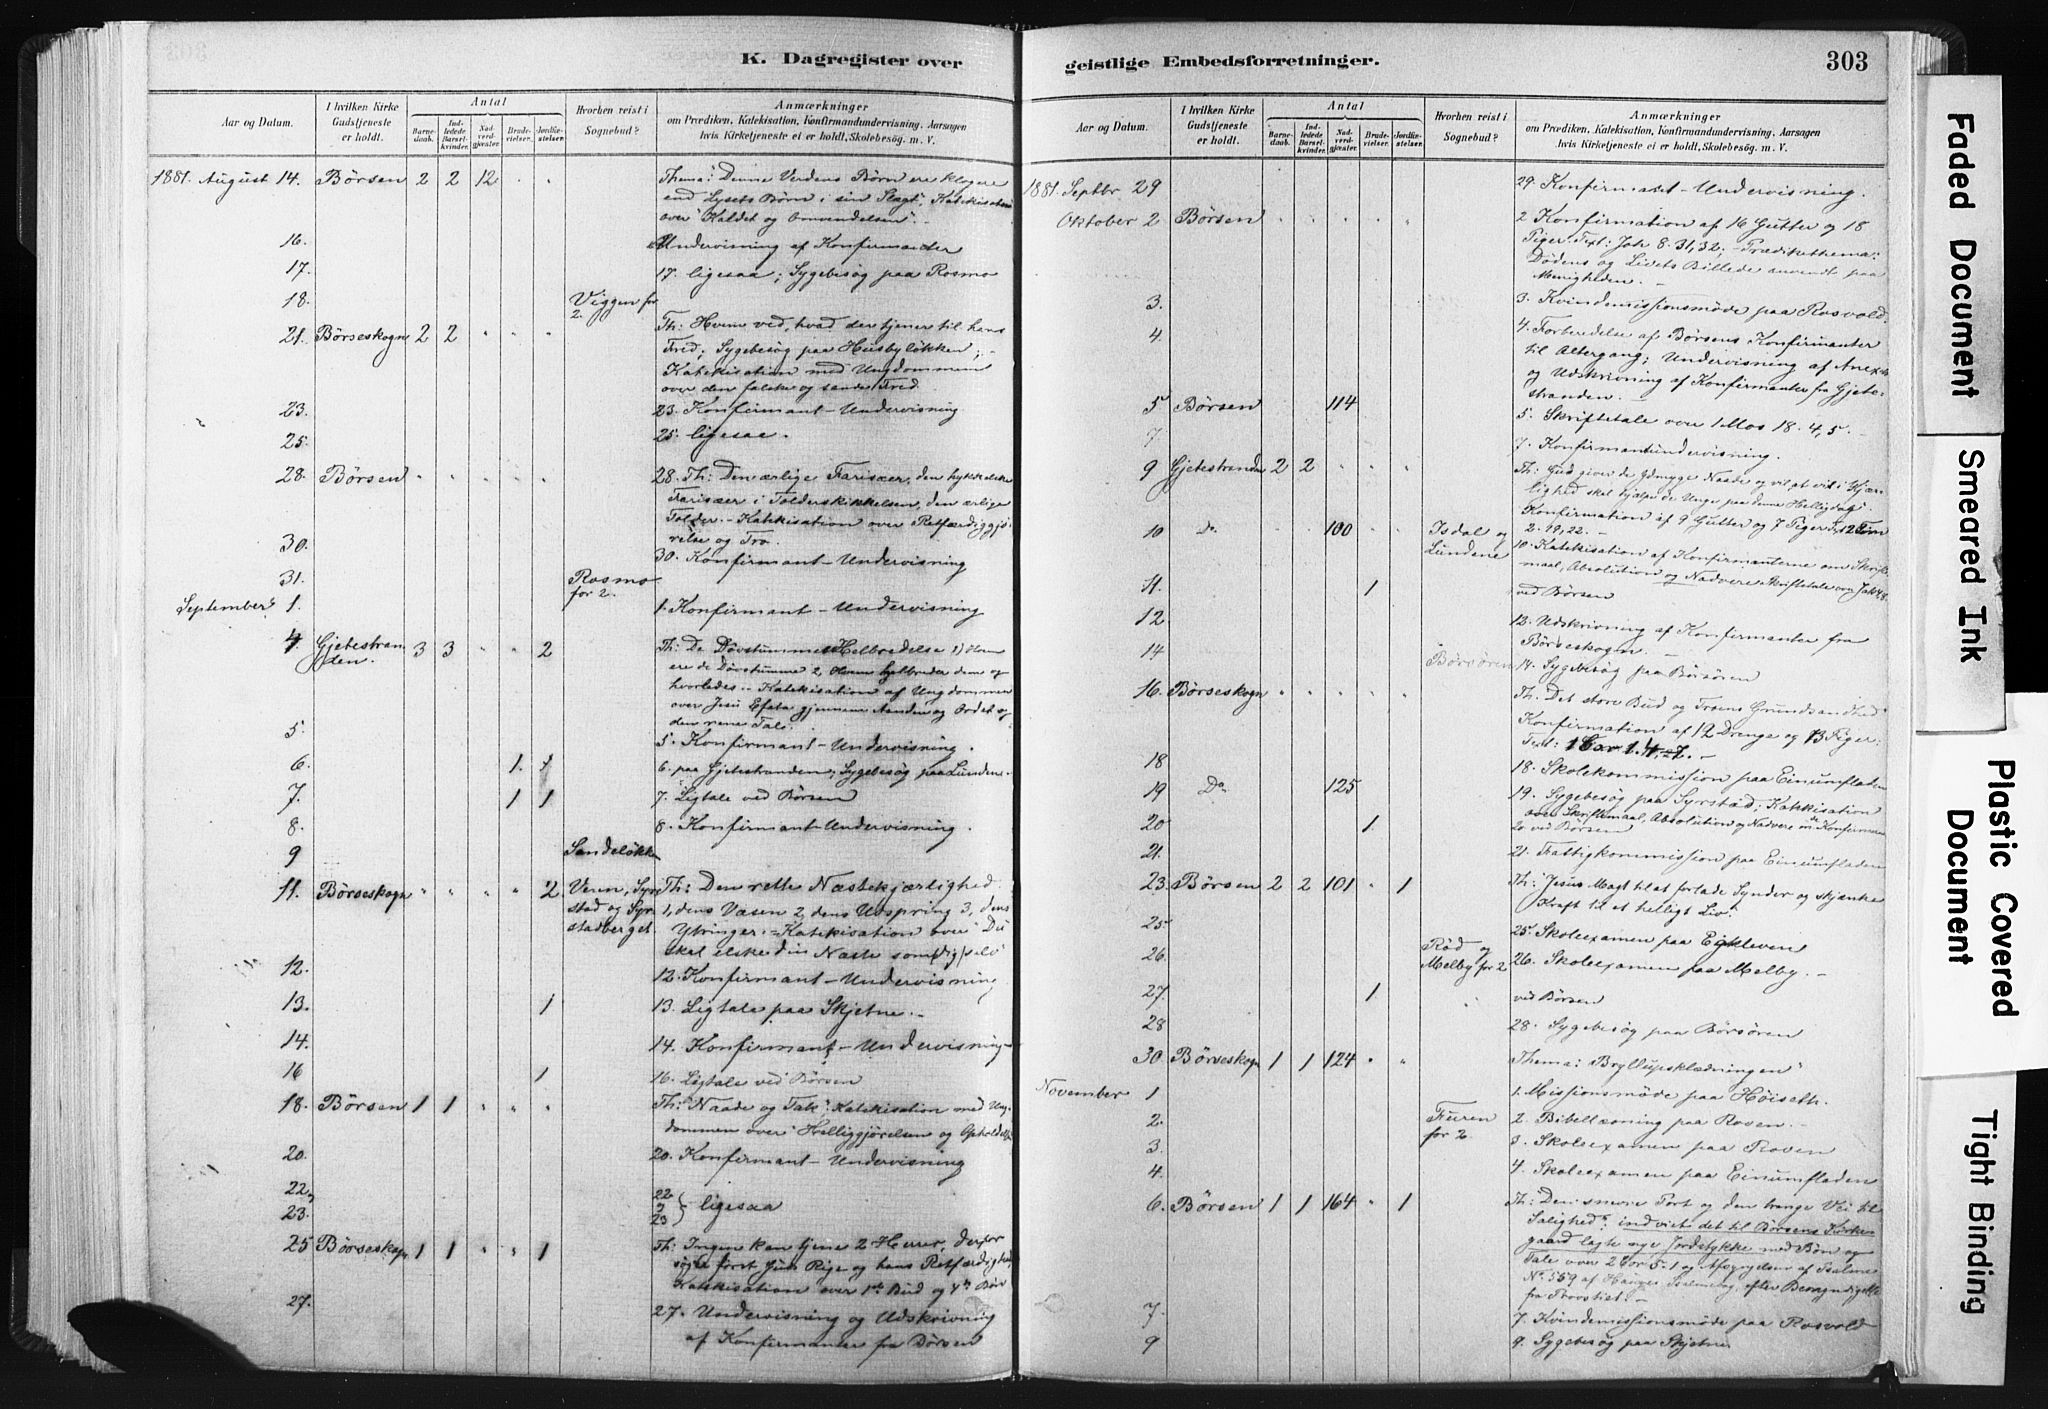 K. Dagregister over
Aar og Datum.
I hvilken Kirke Gudstjeneste er holdt.
Antal
Barnedaab.
Indledede Barselkvinder.
Nadverdgjæster.
Brudevielser.
Jordfæstelser.
Hvorhen reist i Sognebud?
Anmærkninger
om Prædiken, Katekisation, Konfirmandundervisning, Aarsagen
hvis Kirketjeneste ei er holdt, Skolebesøg. m. V.
1881. August 14. Børsen 2 2 12 Thema: Denne Verdens Børn ere klogere
end Lysets Børn i sin Slægt". Katekisation
over "Kaldet og Omvendelsen".
16. Undervisning af Konfirmanter
17. 17. ligesaa; Sygebesøg paa Rosmo
18. Viggen for
2.
21. Børseskogn 2 2 Th: Hvem ved, hvad der tjener til hans
Fred; Sygebesøg paa Husbyløkken;
Katekisation med Ungdommen
over den falske og sande Fred.
23. 23. Konfirmant-Undervisning
25. 25. ligesaa.
28. Børsen 28. Th: Den ærlige Farisæer, den hykkelske
Farisæer i Tolderskikkelsen, den ærlige
Tolder. - Katekisation over Retfærdiggjø-
relse og Tro.
30. 30. Konfirmant-Undervisning
31. Rosmo
for 2.
September 1. 1. Konfirmant-Undervisning
4. Gjetestran-
den. 3 3 2 Th: De Døvstummes Helbredelse 1) Hvem
ere de Døvstumme 2, Hvem helbreder dem og
hvorledes.. Katekisation af Ungdommen
over Jesu Efata gjennem Aanden og Ordet og
den rene Tale.
5. 5. Konfirmant-Undervisning.
6. 1. 1 6. paa Gjetestranden; Sygebesøg paa Lundene.
7. 1 1 7. Ligtale ved Børsen
8. 8. Konfirmant-Undervisning.
9 Sandeløkken
11. Børseskogn 2 Veren, Syr- Th: Den rette Næstekjærlighed
stad og Syr- 1, dens Væsen 2, dens Udspring 3, dens
stadberget Ytringer. - Katekisation over "Du
skal elske din Næste som dig selv"
12. 12. Konfirmant-Undervisning
13. 1 13. Ligtale paa Skjetne.
14. 14. Konfirmant-Undervisning
16 1 16. Ligtale ved Børsen
18. Børsen 1 1 Th: "Naade og Tak". Katekisation med Ung-
dommen over "Helliggjørelsen og Opholdelse
20. 20. Konfirmant-Undervisning
22, 22
23. 23 } ligesaa
25 Børseskogn 1 1 1 Th: Ingen kan tjene 2 Herrer, derfor
søger først Guds Rige og hans Retfærdighed,
Katekisation over 1ste Bud og 4de Bøn
27. 27. Undervisning og Udskrivning
af Konfirmanter fra Børsen
geistlige Embedsforretninger.
303
Aar og Datum.
I hvilken Kirke Gudstjeneste er holdt.
Antal
Barnedaab.
Indledede Barselkvinder.
Nadverdgjæster.
Brudevielser.
Jordfæstelser.
Hvorhen reist i Sognebud?
Anmærkninger
om Prædiken, Katekisation, Konfirmandundervisning, Aarsagen
hvis Kirketjeneste ei er holdt, Skolebesøg. m. V.
1881. Septbr 29 29. Konfirmant-Undervisning.
Oktober 2 Børsen 2 Konfirmation af 16 Gutter og 18
Piger. Text: Joh 8. 31, 32. - Prædikethema:
Dødens og Livets Billede anvendt paa
Menigheden.
3. 3. Kvindemissionsmøde paa Rosvold.
4. 4. Forberedelse af Børsens Konfirmanter
til Altergang; Undervisning af Anexets
og Udskrivning af Konfirmanter fra Gjete-
stranden.
5 Børsen 114 5. Skriftetale over 1 Mos 18. 4, 5.
7. 7. Konfirmantundervisning.
9 Gjetestranden 2 2 Th: Gud giver de Ydmyge Naade og vil, at vi i Kjær-
lighed skal hjælpe de Unge paa denne Helligdag".
Konfirmation af 9 Gutter og 7 Piger. Text 2 Tim
2. 19, 22.
10 Do 100 Isdal og
Lundene 10. Katekisation af Konfirmanterne om Skrifte-
maal, Absolution og Nadvere. Skriftetale over Jak 4, 8.
11. 1 ved Børsen
12 12. Udskrivning af Konfirmanter fra
Børseskogn.
14 Børsøren 14. Sygebesøg paa Børsøren
16. Børseskogn Th. Det store Bud og Troens Grundsandhed"
Konfirmation af 12 Drenge og 13 Piger.
Text: 1 Cor 1. 4-7.
18 18. Skolekommission paa Einumfladen
19 Do 125 19. Sygebesøg paa Syrstad; Katekisation
over Skriftemaal, Absolution og Nadvere m de Konfirmerede
20 1 20 ved Børsen
21. 21. Fattigkommission paa Einumfladen
23. Børsen 2 2 101 1 Th: Jesus Magt til at forlade Synder og skjænke
Kraft til et helligt Liv".
25 25. Skoleexamen paa Eikleven
26. Rød og
Melby for 2 26. Skoleexamen paa Melby.
27. 1 ved Børsen
28 28. Sygebesøg paa Børsøren
30. Børseskogn 1 1 124 Thema: "Bryllupsklædningen"
November 1 1. Missionsmøde paa Høiseth.
2. Furen
for 2. 2. Bibellæsning paa Rosen.
3. 3. Skoleexamen paa Proven
4. 4. Skoleexamen paa Einumfladen
6. Børsen 1 1 164 1 Th: "Den snevre Port og den trange Vei til
Salighed"; indviet det til Børsens Kirke-
gaard lagte nye Jordstykke med Bøn og
Tale over 2 Cor 5. 1 og Afsyngelse af Psalme
No 569 af Hauges Psalmebog, efter Bemyndigelse
fra Provstiet.
7. 7. Kvindemissionsmøde paa Rosvold
9 9. Sygebesøg paa Skjetne
Faded Document
Smeared Ink
Plastic Covered
Document
Tight Binding